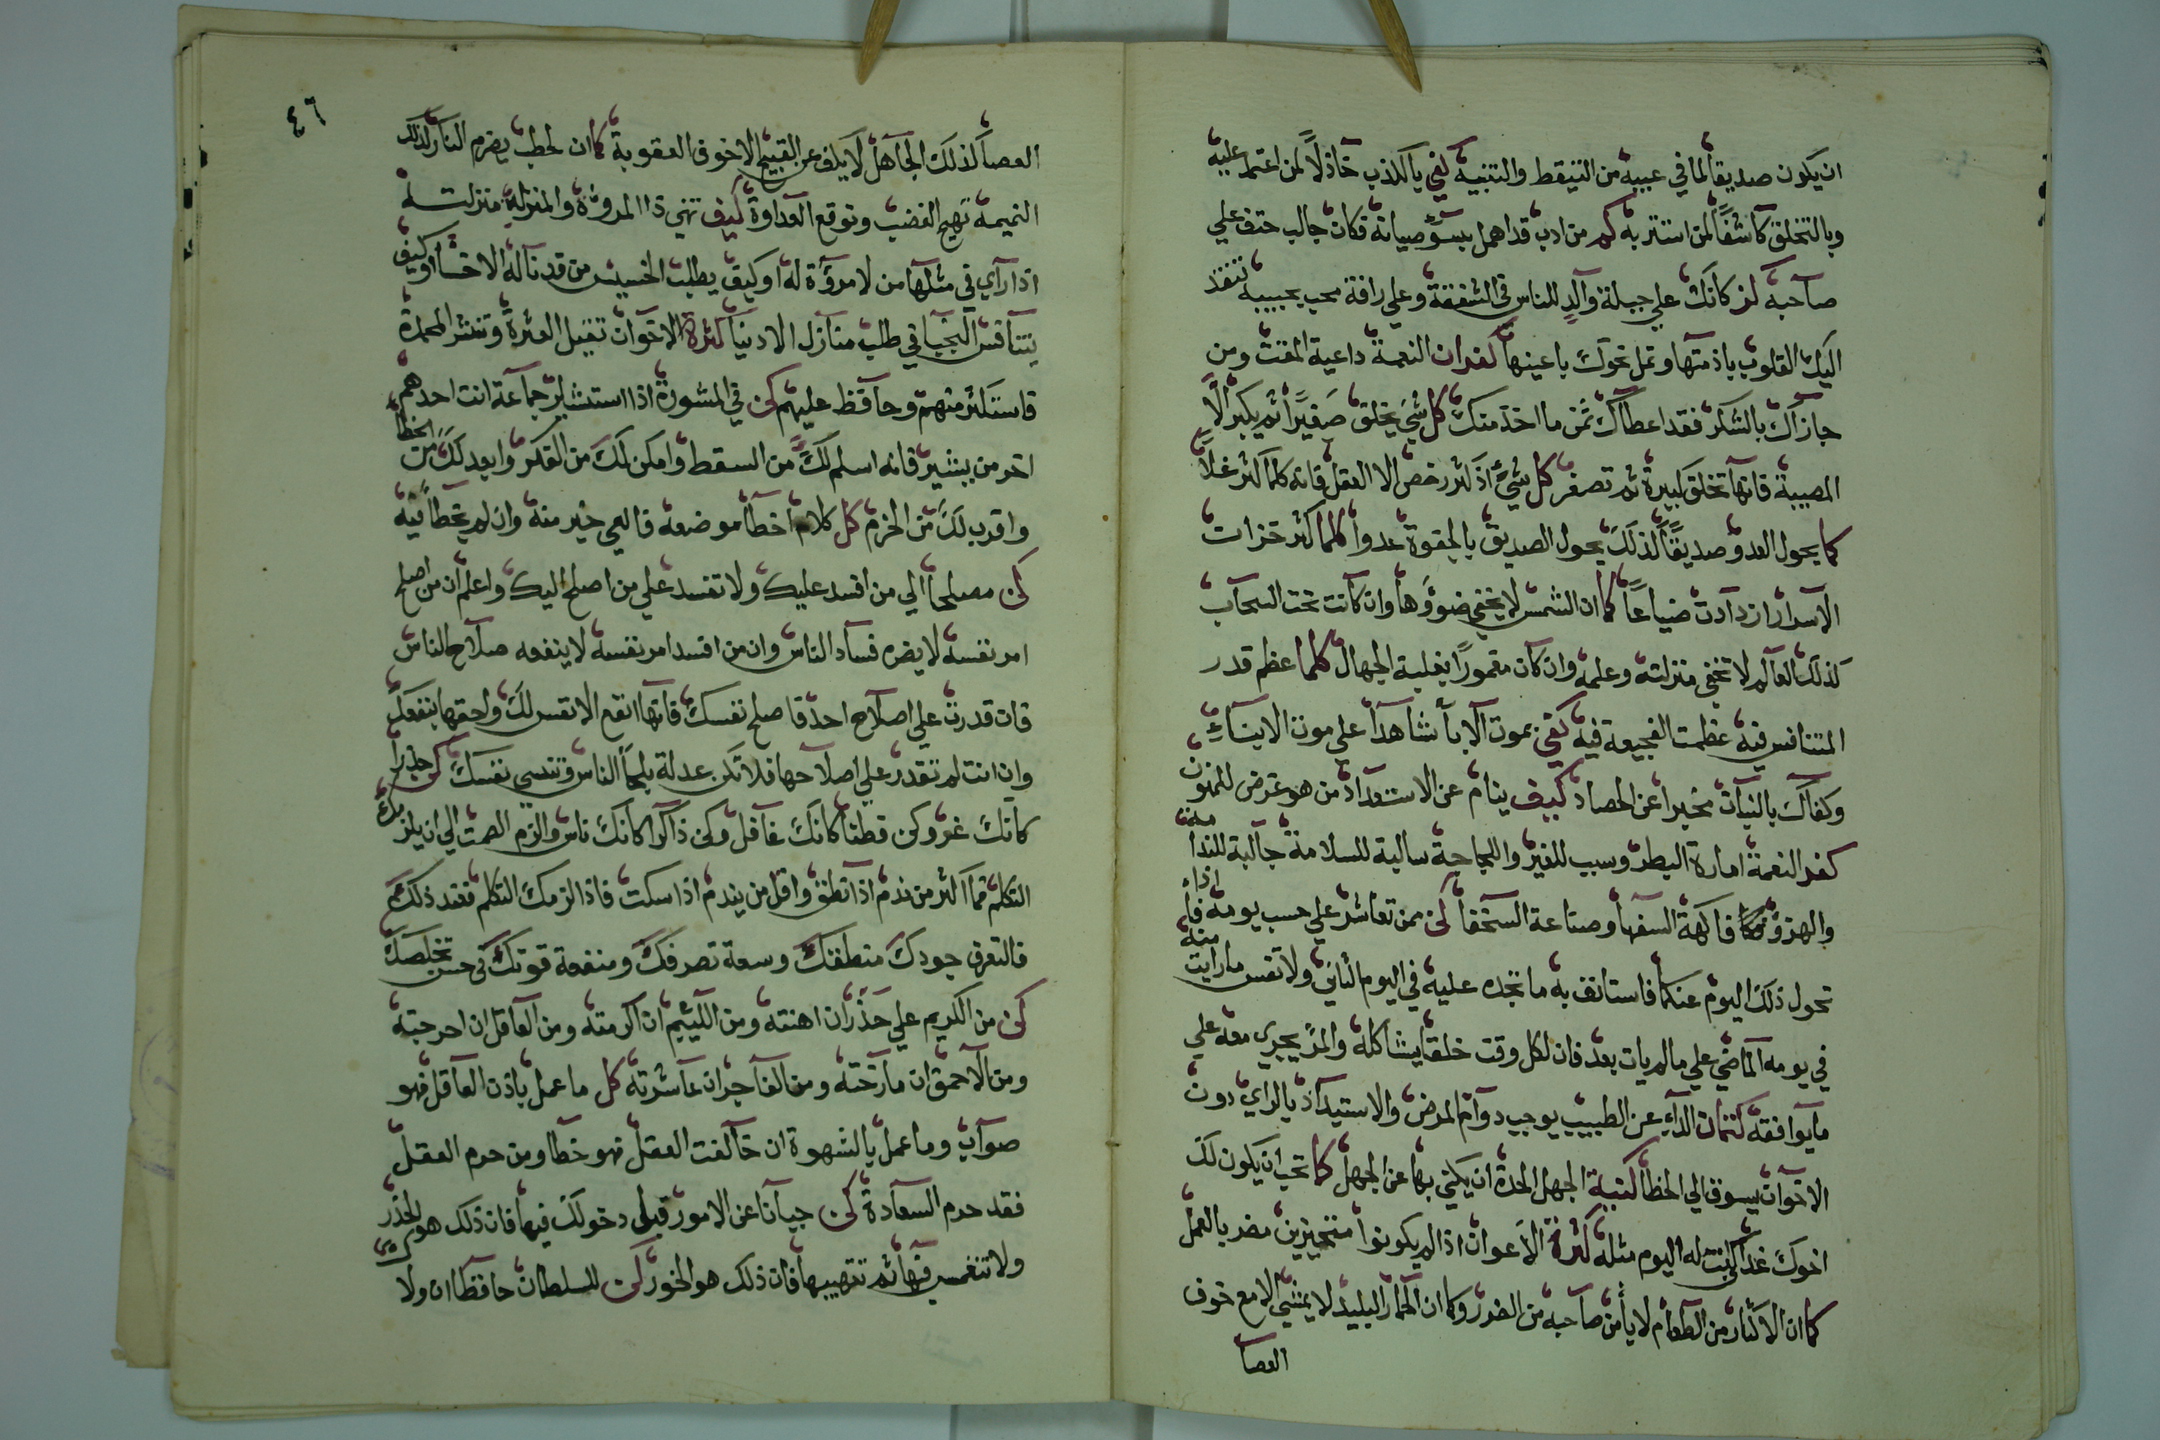 ان يكون صديقا لما في عيبه من التيقظ والتنبيه كفي بالكذب خاذلا لمن اعتمد عليه
وبالتخلق كاشفا لمن استتر به كم من ادب قد اهمل بسؤ صيانة فكان جالب حتف علي
صاحبه كن كانك علي جبلة والد للناس في الشفقة وعلي رافة محب بحبيبه تنقد
اليك القلوب باذمتها وتمل نحوك باعينها كفران النعمة داعية المقت ومن
جازاك بالشكر فقد اعطاك ثمن ما اخذ منك كل شي يخلق صغيرا ثم يكبر الا
المصيبة فانها تخلق كبيرة ثم تصغر كل شيء اذ كثر رخص الا العقل فانه كلما كثر غلا
كما يحول العدو صديقا كذلك يحول الصديق بالجفوة عدوا كلما كثر خزات
الاسرار ازدادت ضياعا كما ان الشمس لا يخفي ضوؤها وان كانت تحت السحاب
كذلك العالم لا تخفي منزلته وعلمه وان كان مغمورا بغلبة الجهال كلما عظم قدر
المتنافس فيه عظمت الفجيعة فيه كفي بموت الابأ شاهدا علي موت الابناء
وكفاك بالنبات مخبرا عن الحصاد كيف ينام عن الاستعداد من هو غرض للمنون
كفر النعمة امارة البطر وسبب للغير واللجاجة سالبة للسلامة جالبة للندامة
والهزؤ فاكهة السفها وصناعة السخفا كن ممن تعاشر علي حسب يومه فاذا
تحول ذلك اليوم عنكما فاستانف به ما تجده عليه في اليوم الثاني ولا تقس ما رايت منه
في يومه الماضي علي ما لم يات بعد فان لكل وقت خلقا يشاكله والمرء يجري معه علي
ما يوافقه كتمان الداء عن الطبيب يوجب دوام المرض والاستبداد بالراي دون
الاخوان يسوق الي الخطأ كنية الجهل الحدة ان يكني بها عن الجهل كما تحب ان يكون لك
اخوك غدا كن انت له اليوم مثله كثرة الاعوان اذا لم يكونوا متخيرين مضر بالعمل
كما ان الاكثار من الطعام لا يأمن صاحبه من الضرر وكما ان الحمار البليد لا يمشي الا مع خوف
العصا
٤٦
العصا كذلك الجاهل لا يكف عن القبيح الا خوف العقوبة كما ان لحطب يضرم النار كذلك
النميمة تهيج الغضب وتوقع العداوة كيف تهني ذا المروءة والمنزلة منزلته
اذا رآي في مثلها من لا مروءة له او كيف يطلب الخسيس من قد ناله الاخساء او كيف
يتنافس النجبا في طلب منازل الادنيا كثرة الاخوان تقيل العثرة وتنشر المحمدة
فاستكثر منهم وحافظ عليهم كن في المشورة اذا استشير جماعة انت احدهم
اخر من يشير فانه اسلم لك من السقط وامكن لك من الفكر وابعد لك من الخطأ
واقرب لك من الحزم كل كلام اخطأ موضعه فالعي خير منه وان لم يخطأ فيه
كن مصلحا الي من افسد عليك ولا تفسد علي من اصلح اليك واعلم ان من اصلح
امر نفسه لا يضره فساد الناس وان من افسد امر نفسه لا ينفعه صلاح الناس
فان قدرت علي اصلاح احد فاصلح نفسك فانها انفع الانفس لك واحقها بنفعك
وان انت لم تقدر علي اصلاحها فلا تكن عدلة بلجا الناس وتنسي نفسك كن حذرا
كانك غر وكن فطنا كانك غافل وكن ذاكرا كانك ناس والزم الصمت الي ان يلزمك
التكلم فما اكثر من ندم اذا نطق واقل من يندم اذا سكت فاذا الزمك التكلم فعند ذلك
فالتعرف جودك منطقك وسعة تصرفك ومنفعة قوتك في حسن تخلصك
كن من الكريم علي حذر ان اهنته ومن اللئيم ان اكرمته ومن العاقل ان احرجته
ومن الاحمق ان مازحته ومن الفاجر ان عاشرته كل ما عمل باذن العاقل فهو
صواب وما عمل بالشهوة ان خالفت العقل فهو خطا ومن حرم العقل
فقد حرم السعادة كن جبانا عن الامور قبل دخولك فيها فان ذلك هو الحذر
ولا تنغمس فيها ثم تتهيبها فان ذلك هو الخور كن للسلطان حافظا ان ولا